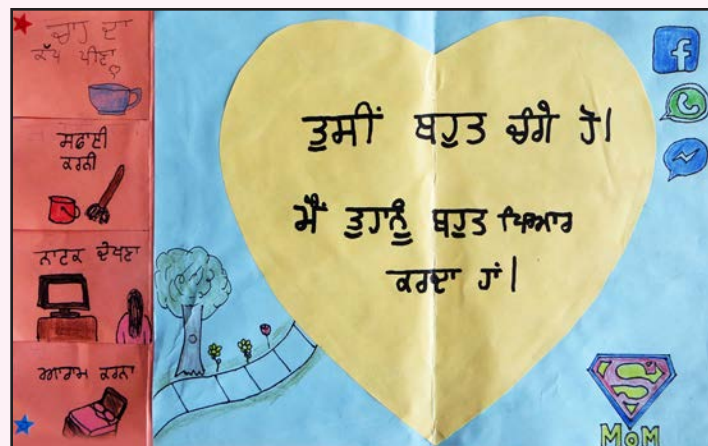 ਚਾਹ ਦਾ
ਕੱਪ ਪੀਣਾ
ਸਫਾਈ
ਕਰਨੀ
ਨਾਟਕ ਦੇਖਣਾ
ਆਰਾਮ ਕਰਨਾ
ਤੁਸੀਂ ਬਹੁਤ ਚੰਗੇ ਹੋ।
ਮੈਂ ਤੁਹਾਨੂੰ ਬਹੁਤ ਪਿਆਰ
ਕਰਦਾ ਹਾਂ।
f
S
MOM